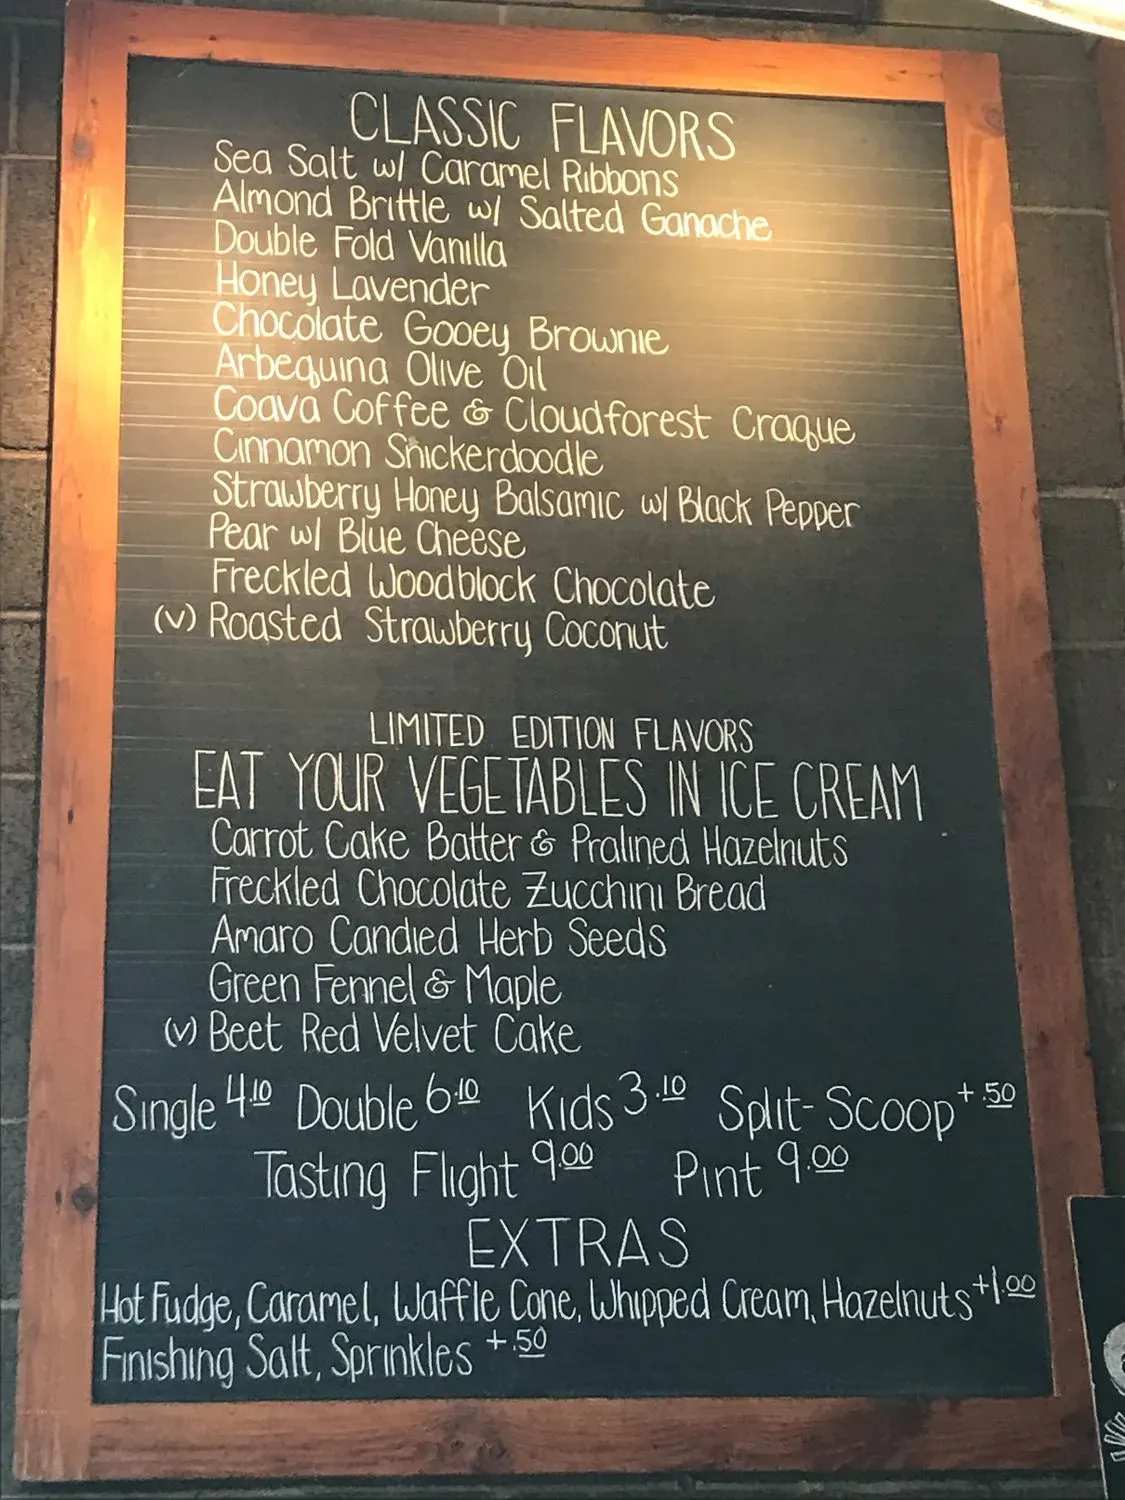 CLASSIC FLAVORS
Sea Salt w/ Caramel Ribbons
Almond Brittle w/ Salted Ganache
Double Fold Vanilla
Honey Lavender
Chocolate Gooey Brownie
Arbequina Olive Oil
Coava Coffee & Cloudforest Craque
Cinnamon Snickerdoodle
Strawberry Honey Balsamic w/ Black Pepper
Pear w/ Blue Cheese
Freckled Woodblock Chocolate
(v) Roasted Strawberry Coconut
LIMITED EDITION FLAVORS
EAT YOUR VEGETABLES IN ICE CREAM
Carrot Cake Batter & Pralined Hazelnuts
Freckled Chocolate Zucchini Bread
Amaro Candied Herb Seeds
Green Fennel & Maple
(v) Beet Red Velvet Cake
Single 4.10 Double 6.10 Kids 3.10 Split-Scoop +.50
Tasting Flight 9.00 Pint 9.00
EXTRAS
Hot Fudge, Caramel, Waffle Cone, Whipped Cream, Hazelnuts +1.00
Finishing Salt, Sprinkles +.50